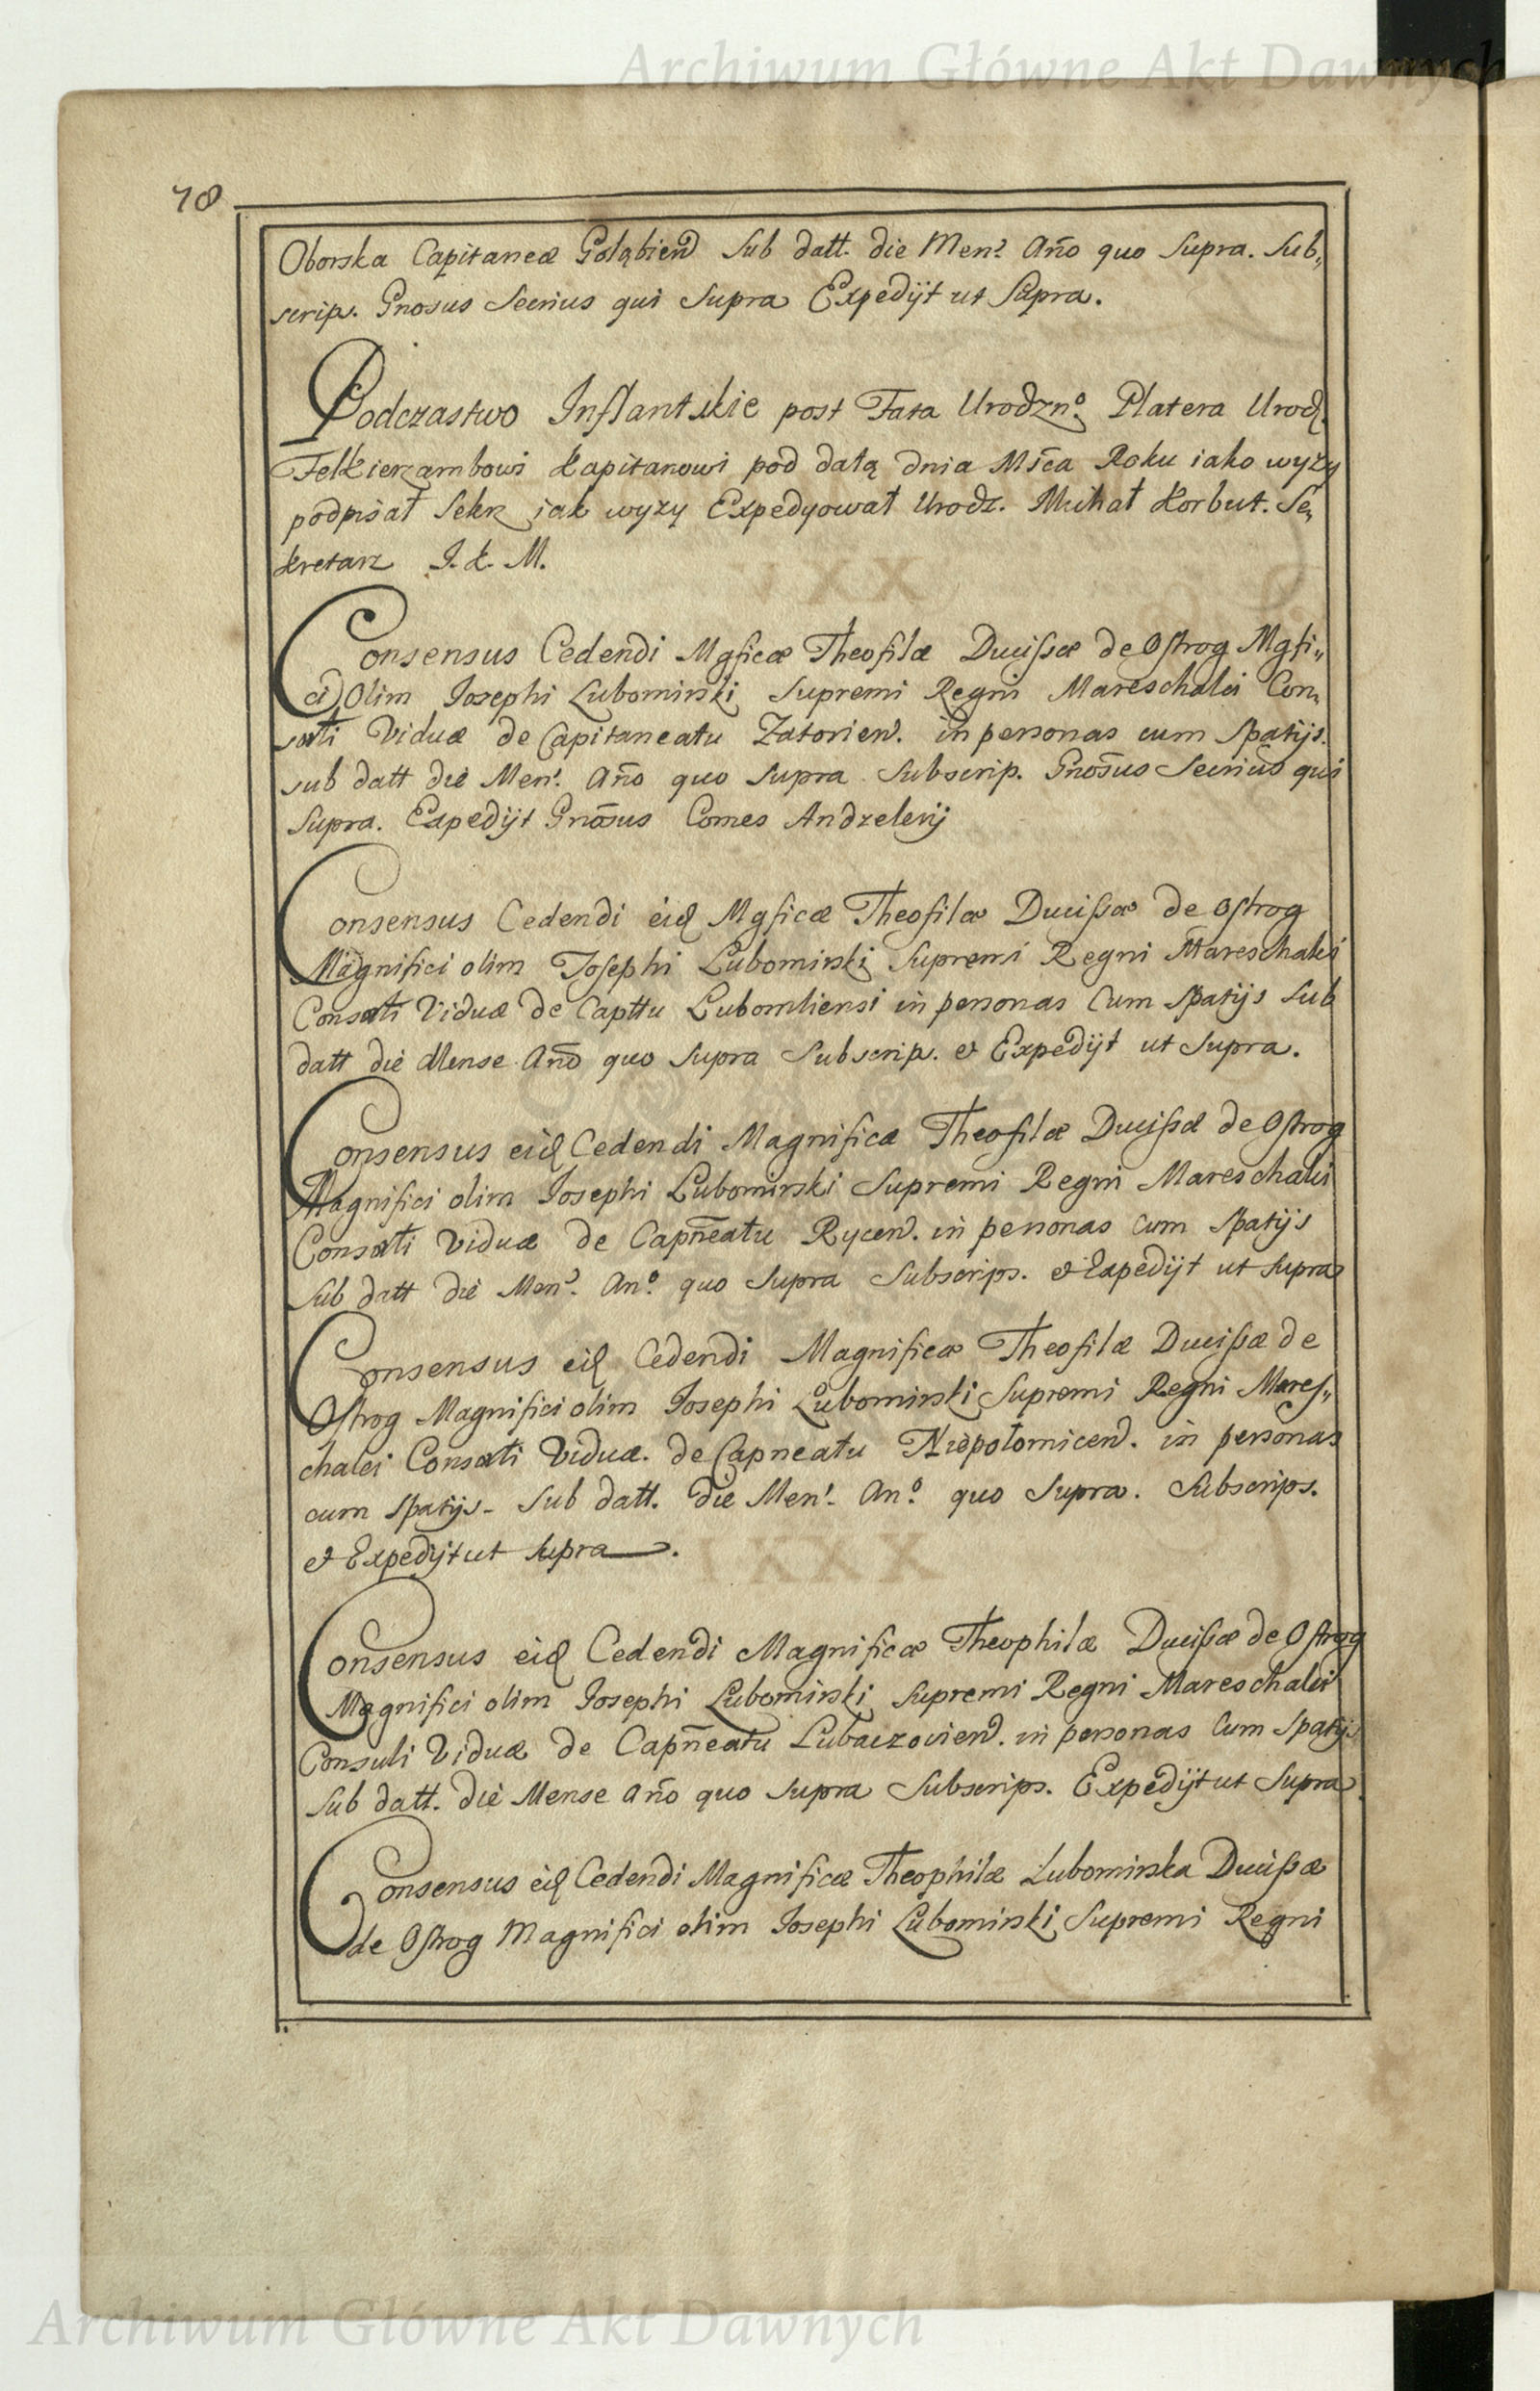 Archiwum Główne Akt Dawnych
78
Oborska Capitaneæ Gołąbien Sub datt. die Men? Año quo Supra. Sub„
scrip. Gnosus Secrius qui Supra Expedijt ut Supra.
Podczastwo Inflantskie post Fata Urodzn? Platera Urodz.
Felkierzambowi Kapitanowi pod datą dnia Mśca Roku iako wyzy
podpisał Sekr jak wyzy Expedyował Urodz. Michał Korbut. Se„
kretarz J. K. M.
Consensus Cedendi Mgficæ Theofilæ Ducißæ de Ostrog Mgfi„
ci Olim Josephi Lubomirski Supremi Regni Mareschalci Con„
sorti Viduæ de Capitaneatu Zatorien. in personas cum Spatijs.
sub datt die Men? Año quo Supra Subscrip. Gnosus Secrius qui
Supra. Expedijt Gnosus Comes Andzelevij
Consensus Cedendi eid Mgficæ Theofilæ Ducißæ de Ostrog
Magnifici olim Josephi Lubomirski Supremi Regni Mareschalci
Consorti Viduæ de Capttu Lubomliensi in personas Cum Spatijs Sub
datt die Mense Año quo Supra Subscrip. et Expedijt ut Supra.
Consensus eid Cedendi Magnificæ Theofilæ Ducißæ de Ostrog
Magnifici olim Josephi Lubomirski Supremi Regni Mareschalci
Consorti Viduæ de Capñeatu Rycen. in personas Cum Spatijs
Sub datt die Men? An? quo Supra Subscrips. et Expedijt ut Supra
Consensus eid Cedendi Magnificæ Theofilæ Ducißæ de
Ostrog Magnifici olim Josephi Lubomirski Supremi Regni Mares„
chalci Consorti Viduæ. de Capneatu Niepołomicen. in personas
cum Spatijs. Sub datt. die Men? An? quo Supra. Subscrips.
et Expedijt ut Supra.
Consensus eid Cedendi Magnificæ Theophilæ Ducißæ de Ostrog
Magnifici olim Josephi Lubomirski Supremi Regni Mareschalci
Consuli Viduæ de Capñeatu Lubaczovien. in personas Cum Spatijs
Sub datt. die Mense Año quo Supra Subscrips. Expedijt ut Supra.
Consensus eid Cedendi Magnificæ Theophilæ Lubomirska Ducißæ
de Ostrog Magnifici olim Josephi Lubomirski Supremi Regni
Archiwum Główne Akt Dawnych